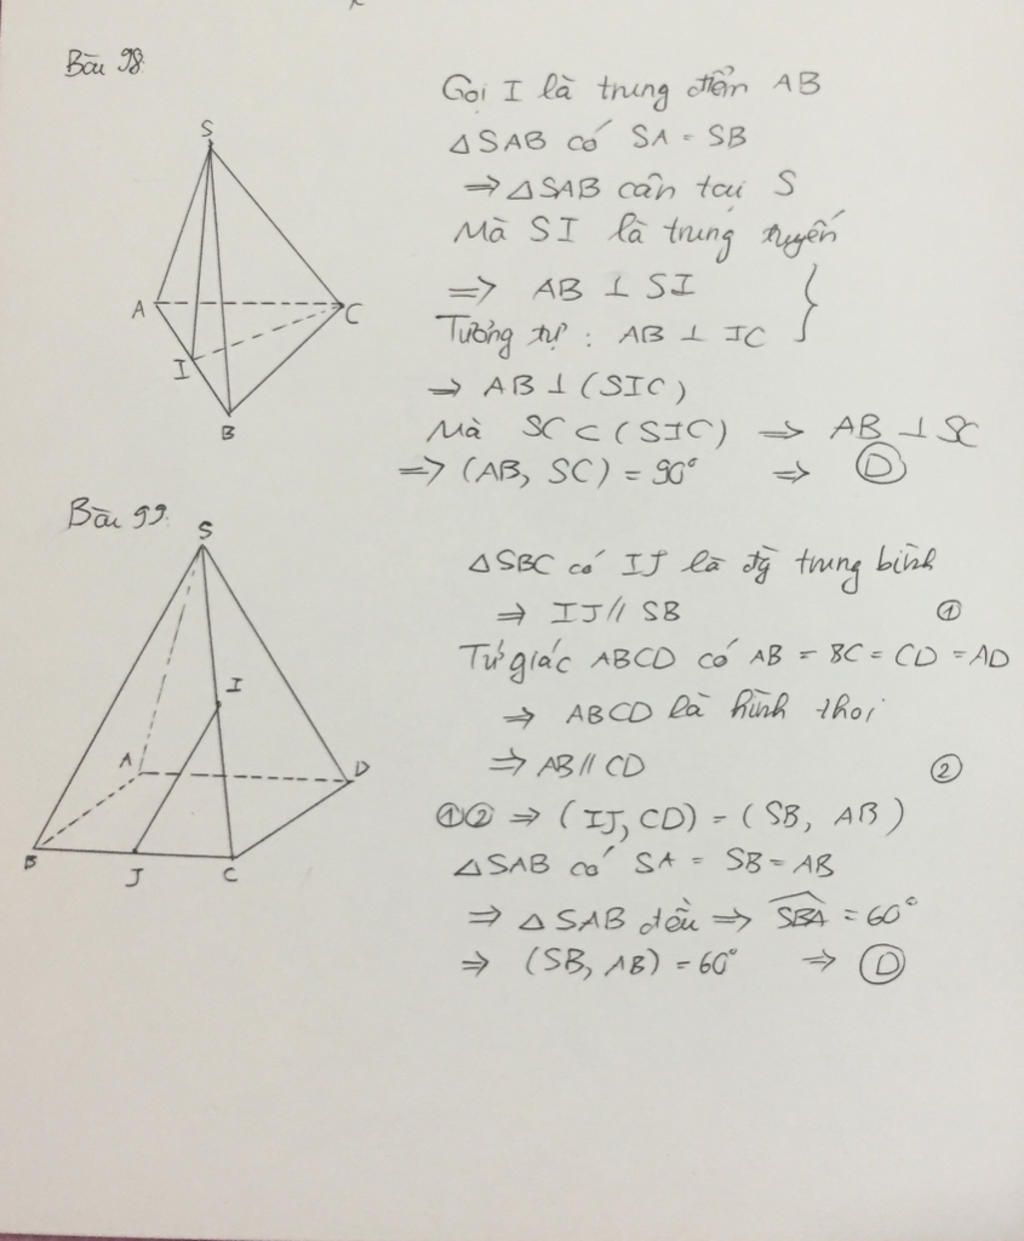 Bài 98.
S
A
C
I
B
Gọi I là trung điểm AB
△SAB có SA = SB
⇒ △SAB cân tại S
Mà SI là trung tuyến
⇒ AB ⊥ SI
Tương tự : AB ⊥ IC
⇒ AB ⊥ (SIC)
Mà SC ⊂ (SIC) ⇒ AB ⊥ SC
⇒ (AB, SC) = 90° ⇒ Ⓓ
Bài 99.
S
I
A
D
B
J
C
△SBC có IJ là đg trung bình
⇒ IJ // SB ①
Tứ giác ABCD có AB = BC = CD = AD
⇒ ABCD là hình thoi
⇒ AB // CD ②
①② ⇒ (IJ, CD) = (SB, AB)
△SAB có SA = SB = AB
⇒ △SAB đều ⇒ \widehat{SBA} = 60°
⇒ (SB, AB) = 60° ⇒ Ⓓ